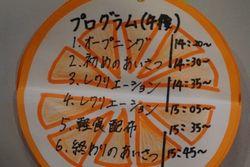 プログラム(午後)
1.オープニング 14:20～
2.初めのあいさつ 14:30～
3.レクリエーション 14:35～
4.レクリエーション 15:05～
5.軽食配布 15:35～
6.終わりのあいさつ 15:45～